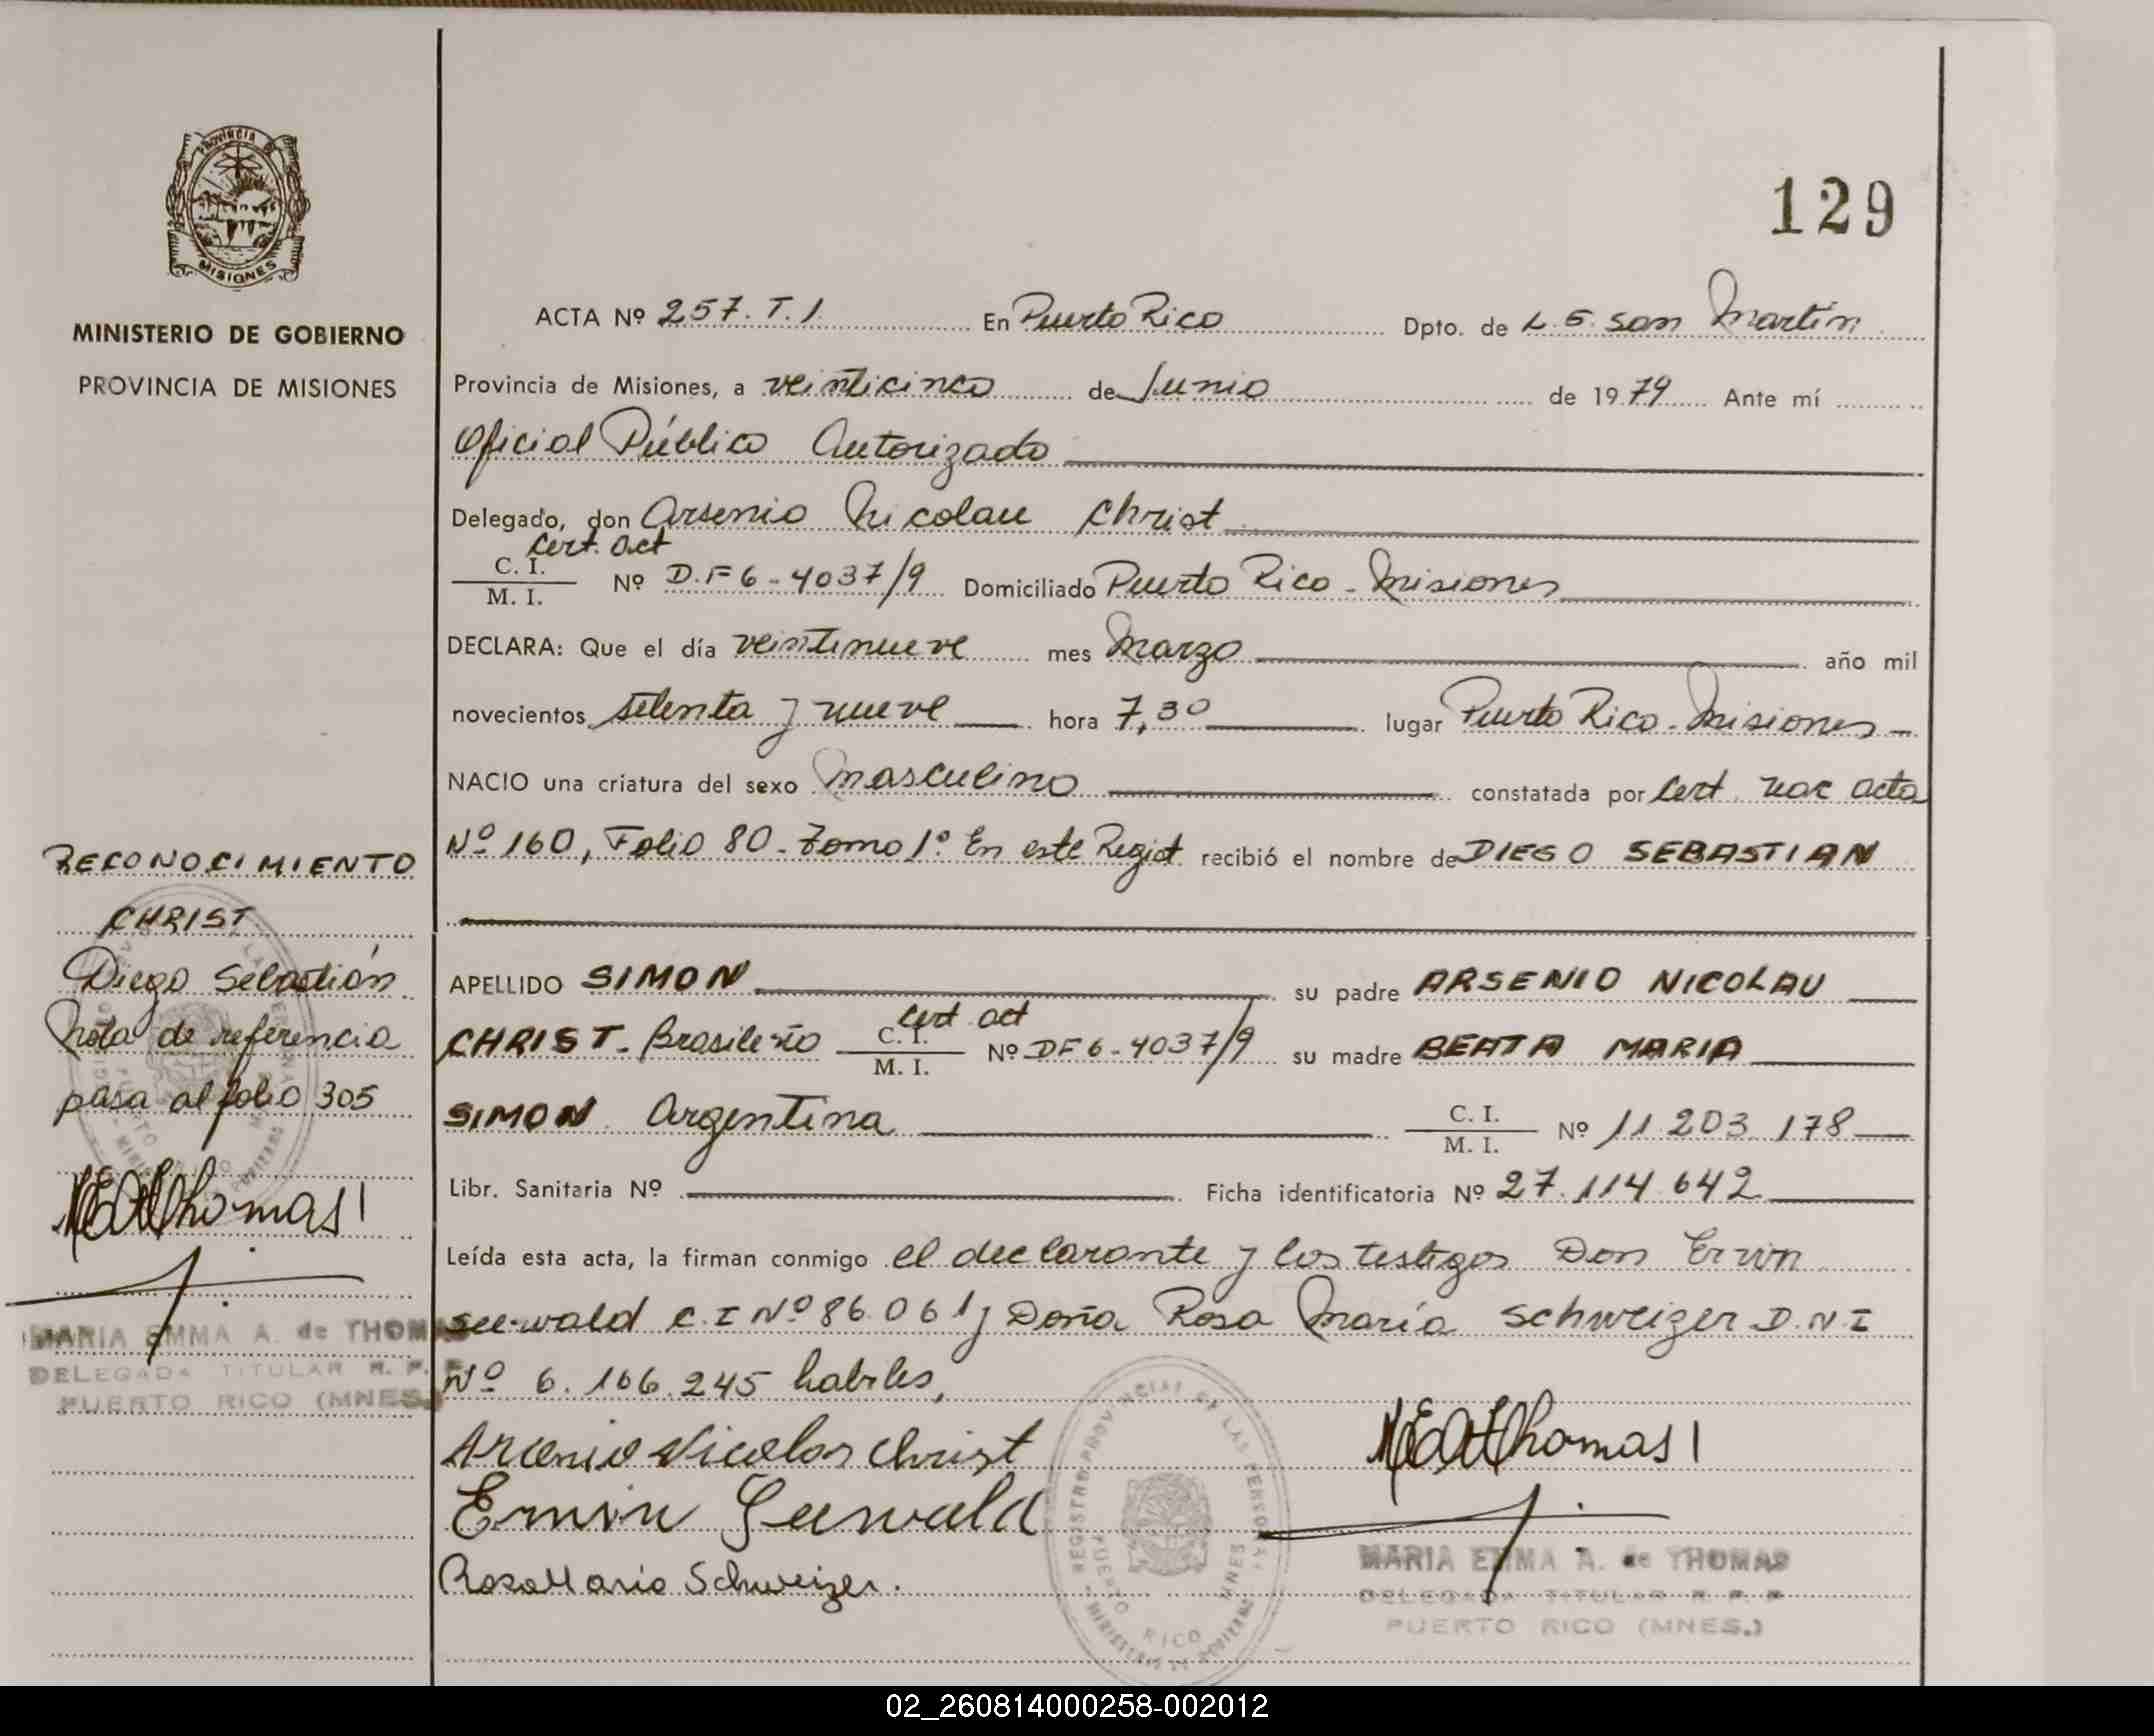 PROVINCIA DE
MISIONES
MINISTERIO DE GOBIERNO
PROVINCIA DE MISIONES
129
ACTA Nº 257. T. 1 En Puerto Rico Dpto. de L. G. San Martín
Provincia de Misiones, a veinticinco de Junio de 1979 Ante mí
Oficial Público Autorizado
Delegado, don Arsenio Nicolau Christ
Cert. act
C. I. / M. I. Nº D.F 6-4037/9 Domiciliado Puerto Rico - Misiones
DECLARA: Que el día veintinueve mes Marzo año mil
novecientos setenta y nueve hora 7,30 lugar Puerto Rico - Misiones -
NACIO una criatura del sexo Masculino constatada por Cert. nac acta
Nº 160, Folio 80 - Tomo 1º En este Regist. recibió el nombre de DIEGO SEBASTIAN
APELLIDO SIMON su padre ARSENIO NICOLAU
Cert act
CHRIST - Brasileño C. I. / M. I. Nº DF 6-4037/9 su madre BEATA MARIA
SIMON Argentina C. I. / M. I. Nº 11 203 178
Libr. Sanitaria Nº Ficha identificatoria Nº 27.114.642
Leída esta acta, la firman conmigo el declarante y los testigos Don Ervin
Seewald C. I Nº 86.061 y Doña Rosa María Schweizer D.N.I
Nº 6.166.245 habiles,
Arsenio Nicolas Christ
Ervin Seewald
Rosa Maria Schweizer.
MEAThomas
MARIA EMMA A. de THOMAS
DELEGADA TITULAR R. P. P
PUERTO RICO (MNES.)
REGISTRO PROVINCIAL DE LAS PERSONAS
PUERTO RICO MNES
MINISTERIO DE GOBIERNO
RECONOCIMIENTO
CHRIST
Diego Sebastián
Nota de referencia
pasa al folio 305
MEAThomas
MARIA EMMA A. de THOMAS
DELEGADA TITULAR R. P. P.
PUERTO RICO (MNES.)
02_260814000258-002012